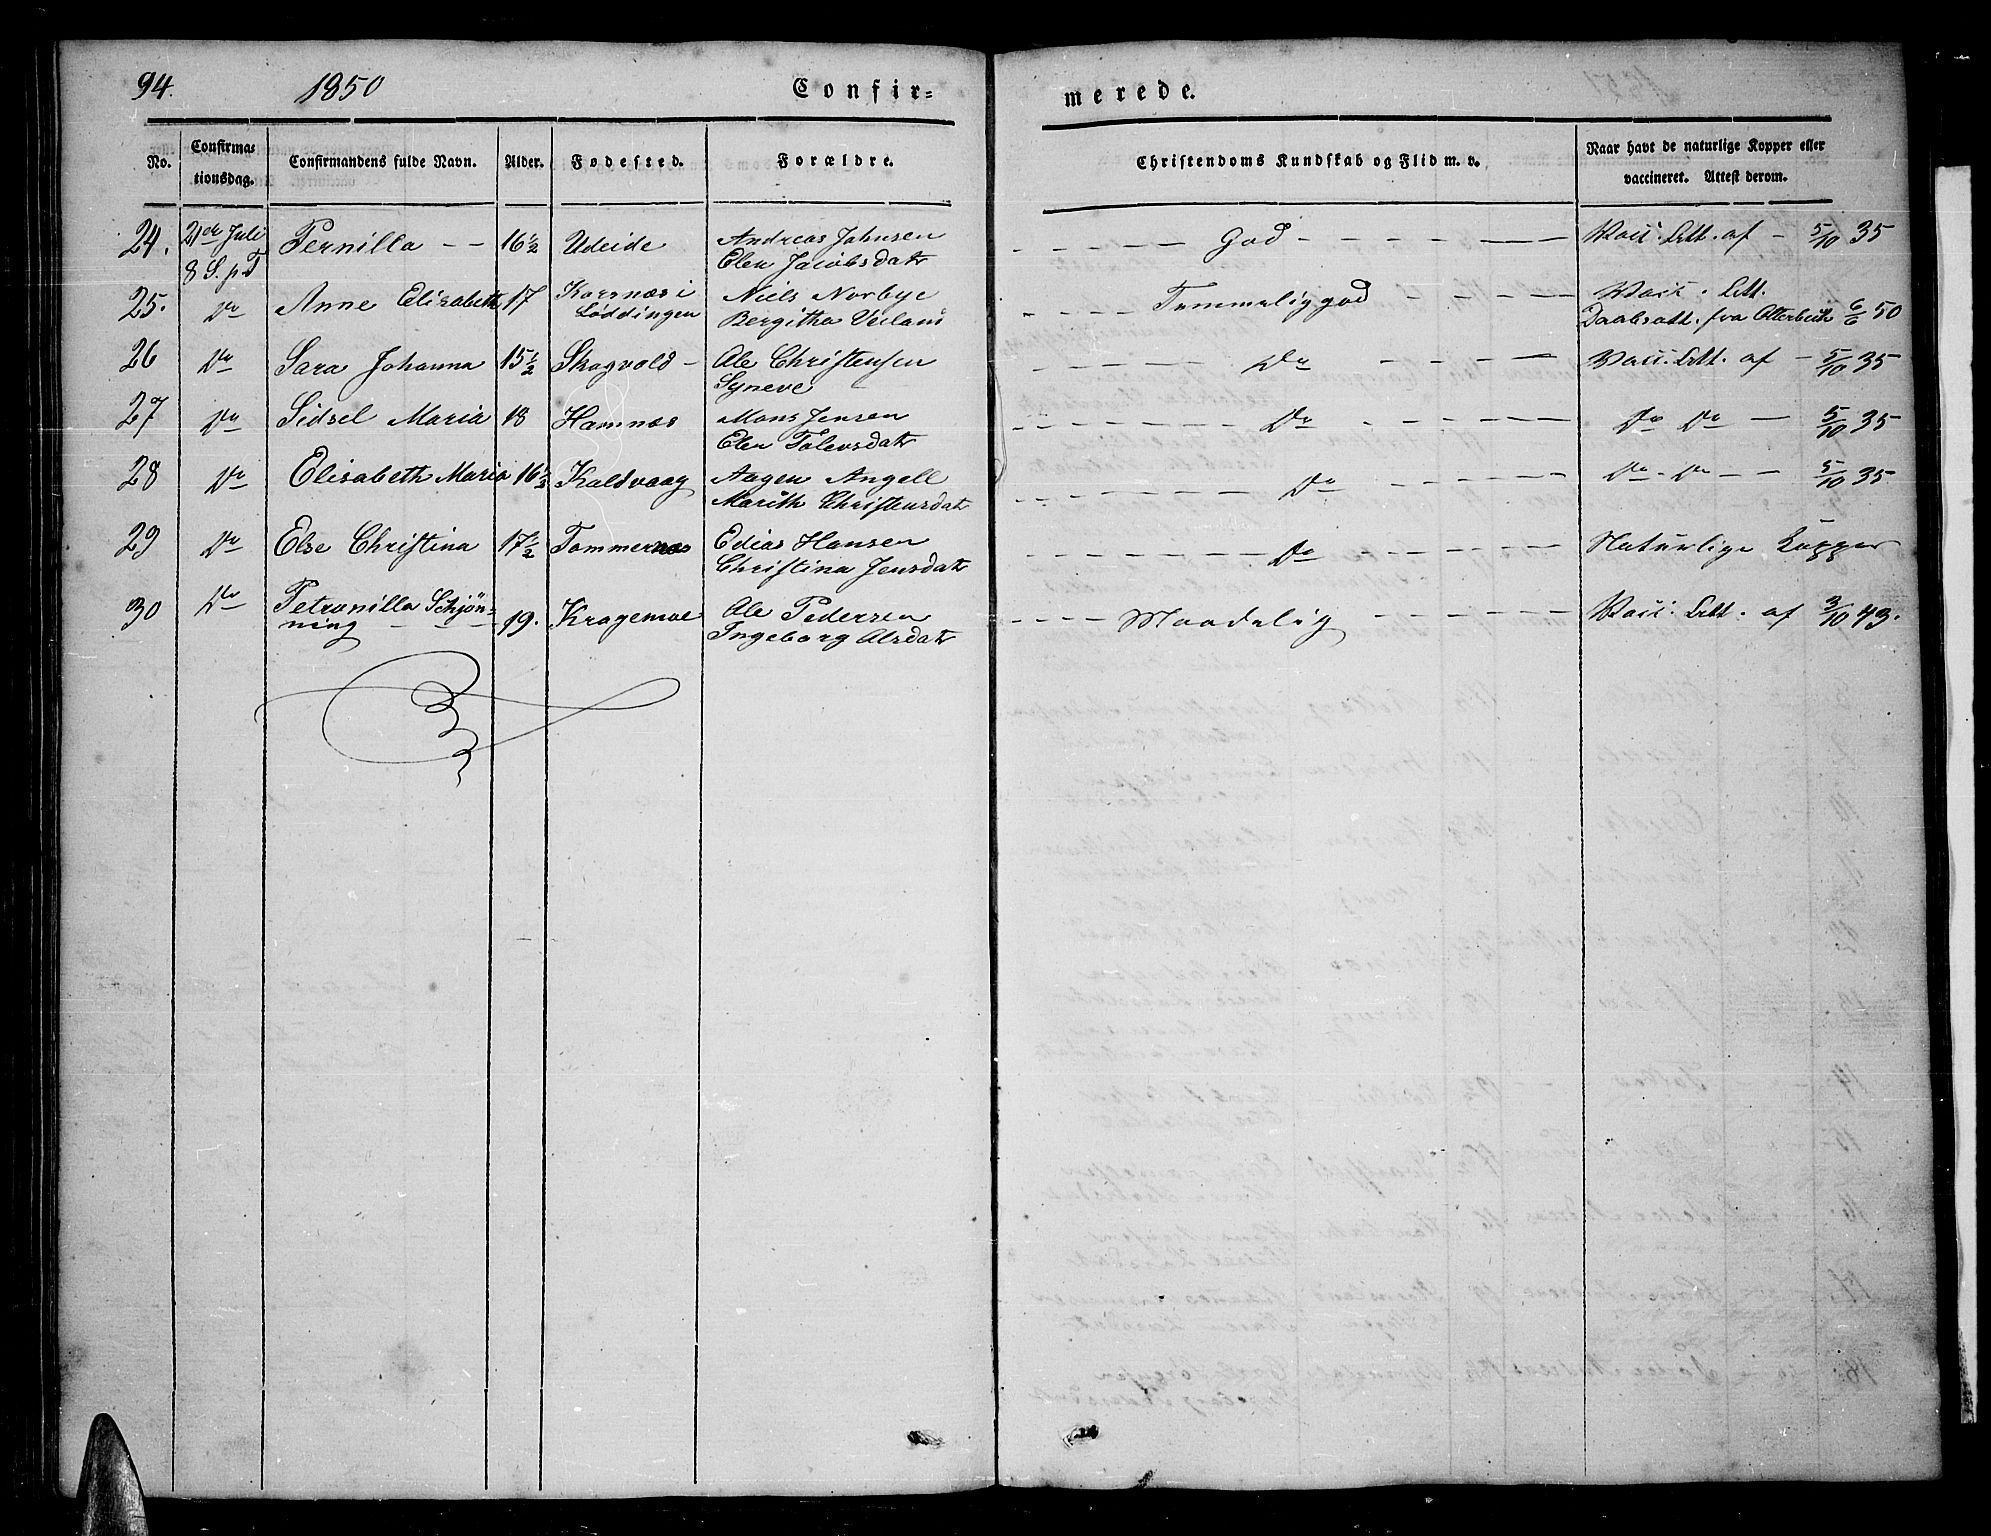 94. 1850 Confir= merede.
No. Confirma= tionsdag. Confirmandens fulde Navn. Alder. Fødested. Forældre. Christendoms Kundskab og Flid m. v. Naar havt de naturlige Kopper eller vaccineret. Attest derom.
24. 21de Juli Pernilla - - 16½ Udeide Andreas Johnsen God Vacc. Att. af - 5/10 35
8 S. p. T Elen Jacobsdatr
25. Do Anne Elisabeth 17 Korsnæs i Niels Norbye Temmelig god Vacc. Att.
Løddingen Bergitha Daabsatt. fra 6/6 50
26 Do Sara Johanna 15½ Skogvold - Ole Christensen Do Vacc. Att. af - 5/10 35
Syneve
27 Do Sidsel Maria 18 Hamnæs Mons Jensen Do Do Do - 5/10 35
Elen Tolevsdatr
28 Do Elisabeth Maria 16½ Kaldvaag Aagen Angell Do Do - Do - - 5/10 35
Marith Christensdatr
29 Do Else Christina 17½ Tommernæs Edias Hansen Do Naturlige Kopper
Christina Jensdatr
30 Do Petronilla Schjøn- 19. Kragemoe Ole Pedersen Maadelig Vacc. Att. af 3/10 43.
ning Ingeborg Olsdatr